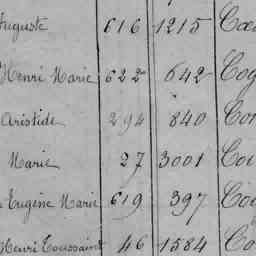 Auguste 616 1215
Henri Marie 622 642
Aristide 294 840
Marie 27 3001
Eugène Marie 619 397
Henri Toussaint 46 1584